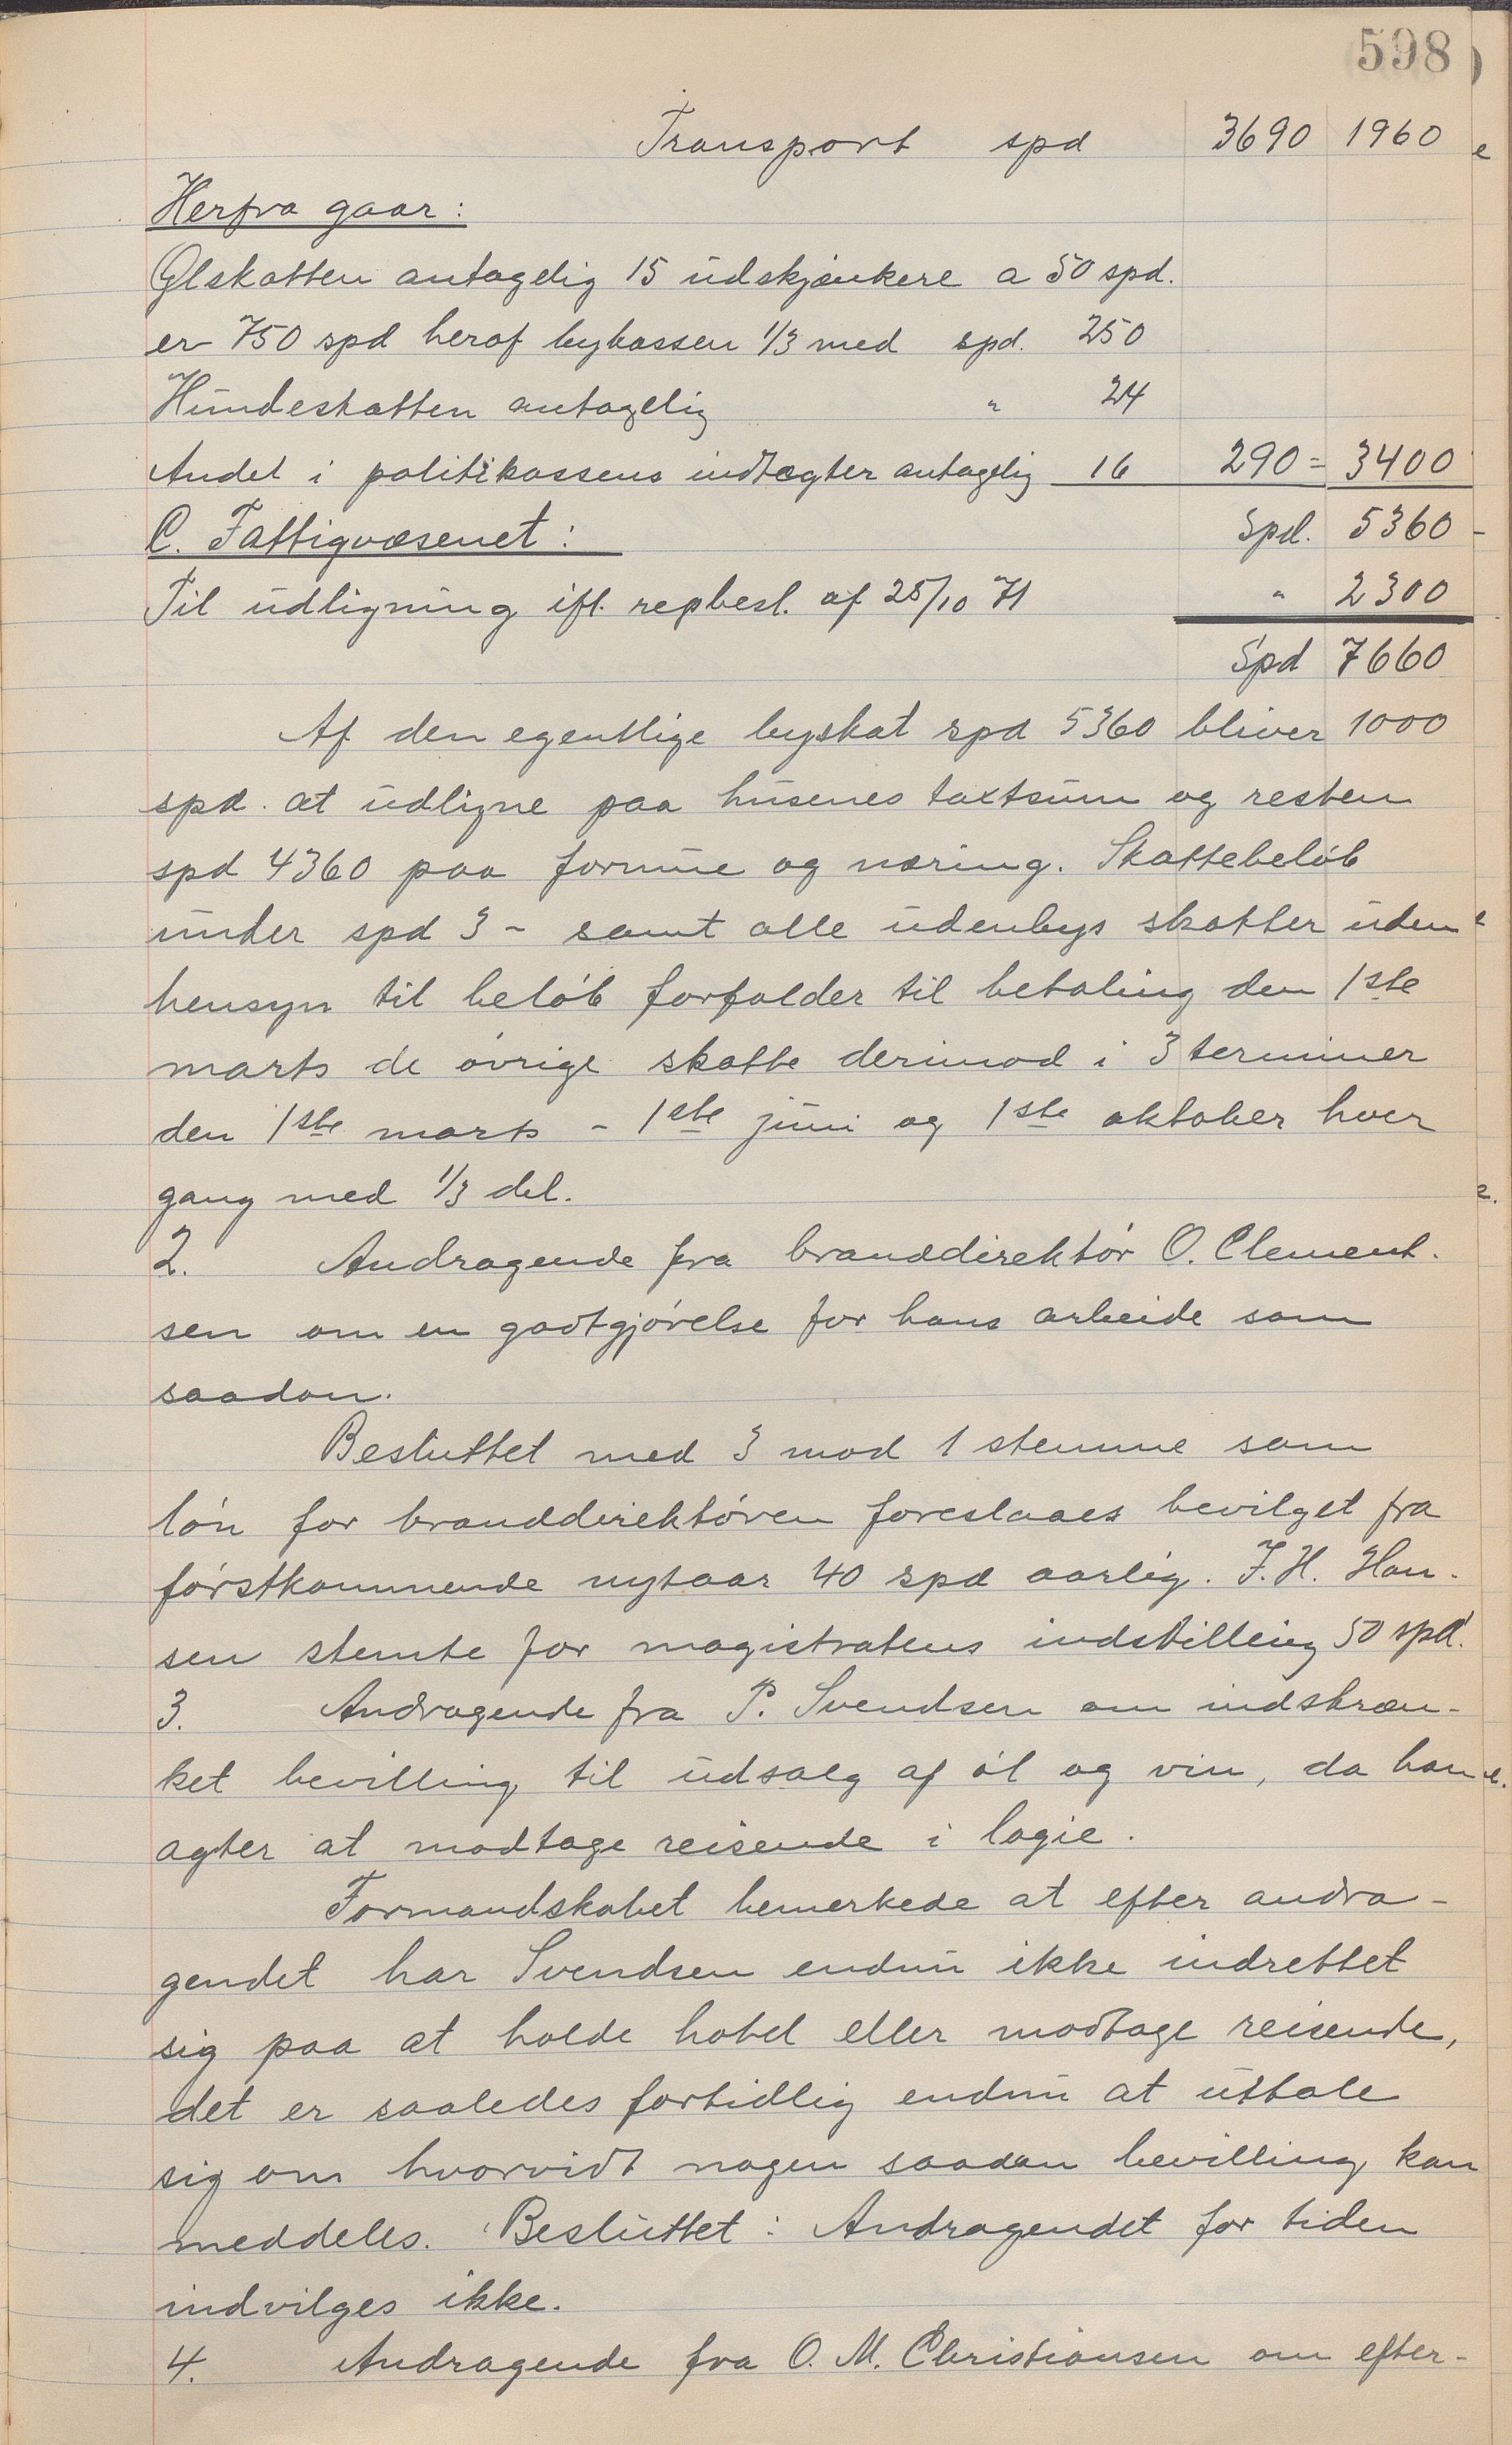 598
Transport spd 3690 1960
Herfra gaar:
Ølskatten antagelig 15 udskjænkere a 50 spd.
er 750 spd heraf bykassen 1/3 med spd. 250
Hundeskatten antagelig " 24
Andet i politikassens indtægter antagelig 16 290 = 3400
C. Fattigvæsenet: Spd. 5360 -
Til udligning ifl. repbesl. af 25/10 71 " 2300
Spd 7660
Af den egentlige byskat spd 5360 bliver 1000
spd. at udligne paa husenes taxtsum og resten
spd 4360 paa formue og næring. Skattebeløb
under spd 3 - samt alle udenbys skatter uden
hensyn til beløb forfalder til betaling den 1ste
marts de øvrige skatte derimod i 3 terminer
den 1ste marts - 1ste juni og 1ste oktober hver
gang med 1/3 del.
2. Andragende fra branddirektør O. Clement-
sen om en godtgjørelse for hans arbeide som
saadan.
Besluttet med 3 mod 1 stemme som
løn for branddirektøren foreslaaes bevilget fra
førstkommende nytaar 40 spd aarlig. J. H. Han-
sen stemte for magistratens indstilling 50 spd.
3. Andragende fra P. Svendsen om indskræn-
ket bevilling til udsalg af øl og vin, da han
agter at modtage reisende i logie.
Formandskabet bemerkede at efter andra-
gendet har Svendsen endnu ikke indrettet
sig paa at holde hotel eller modtage reisende,
det er saaledes fortidlig endnu at uttale
sig om hvorvidt nogen saadan bevilling kan
meddeles. Besluttet: Andragendet for tiden
indvilges ikke.
4. Andragende fra O. M. Christiansen om efter-